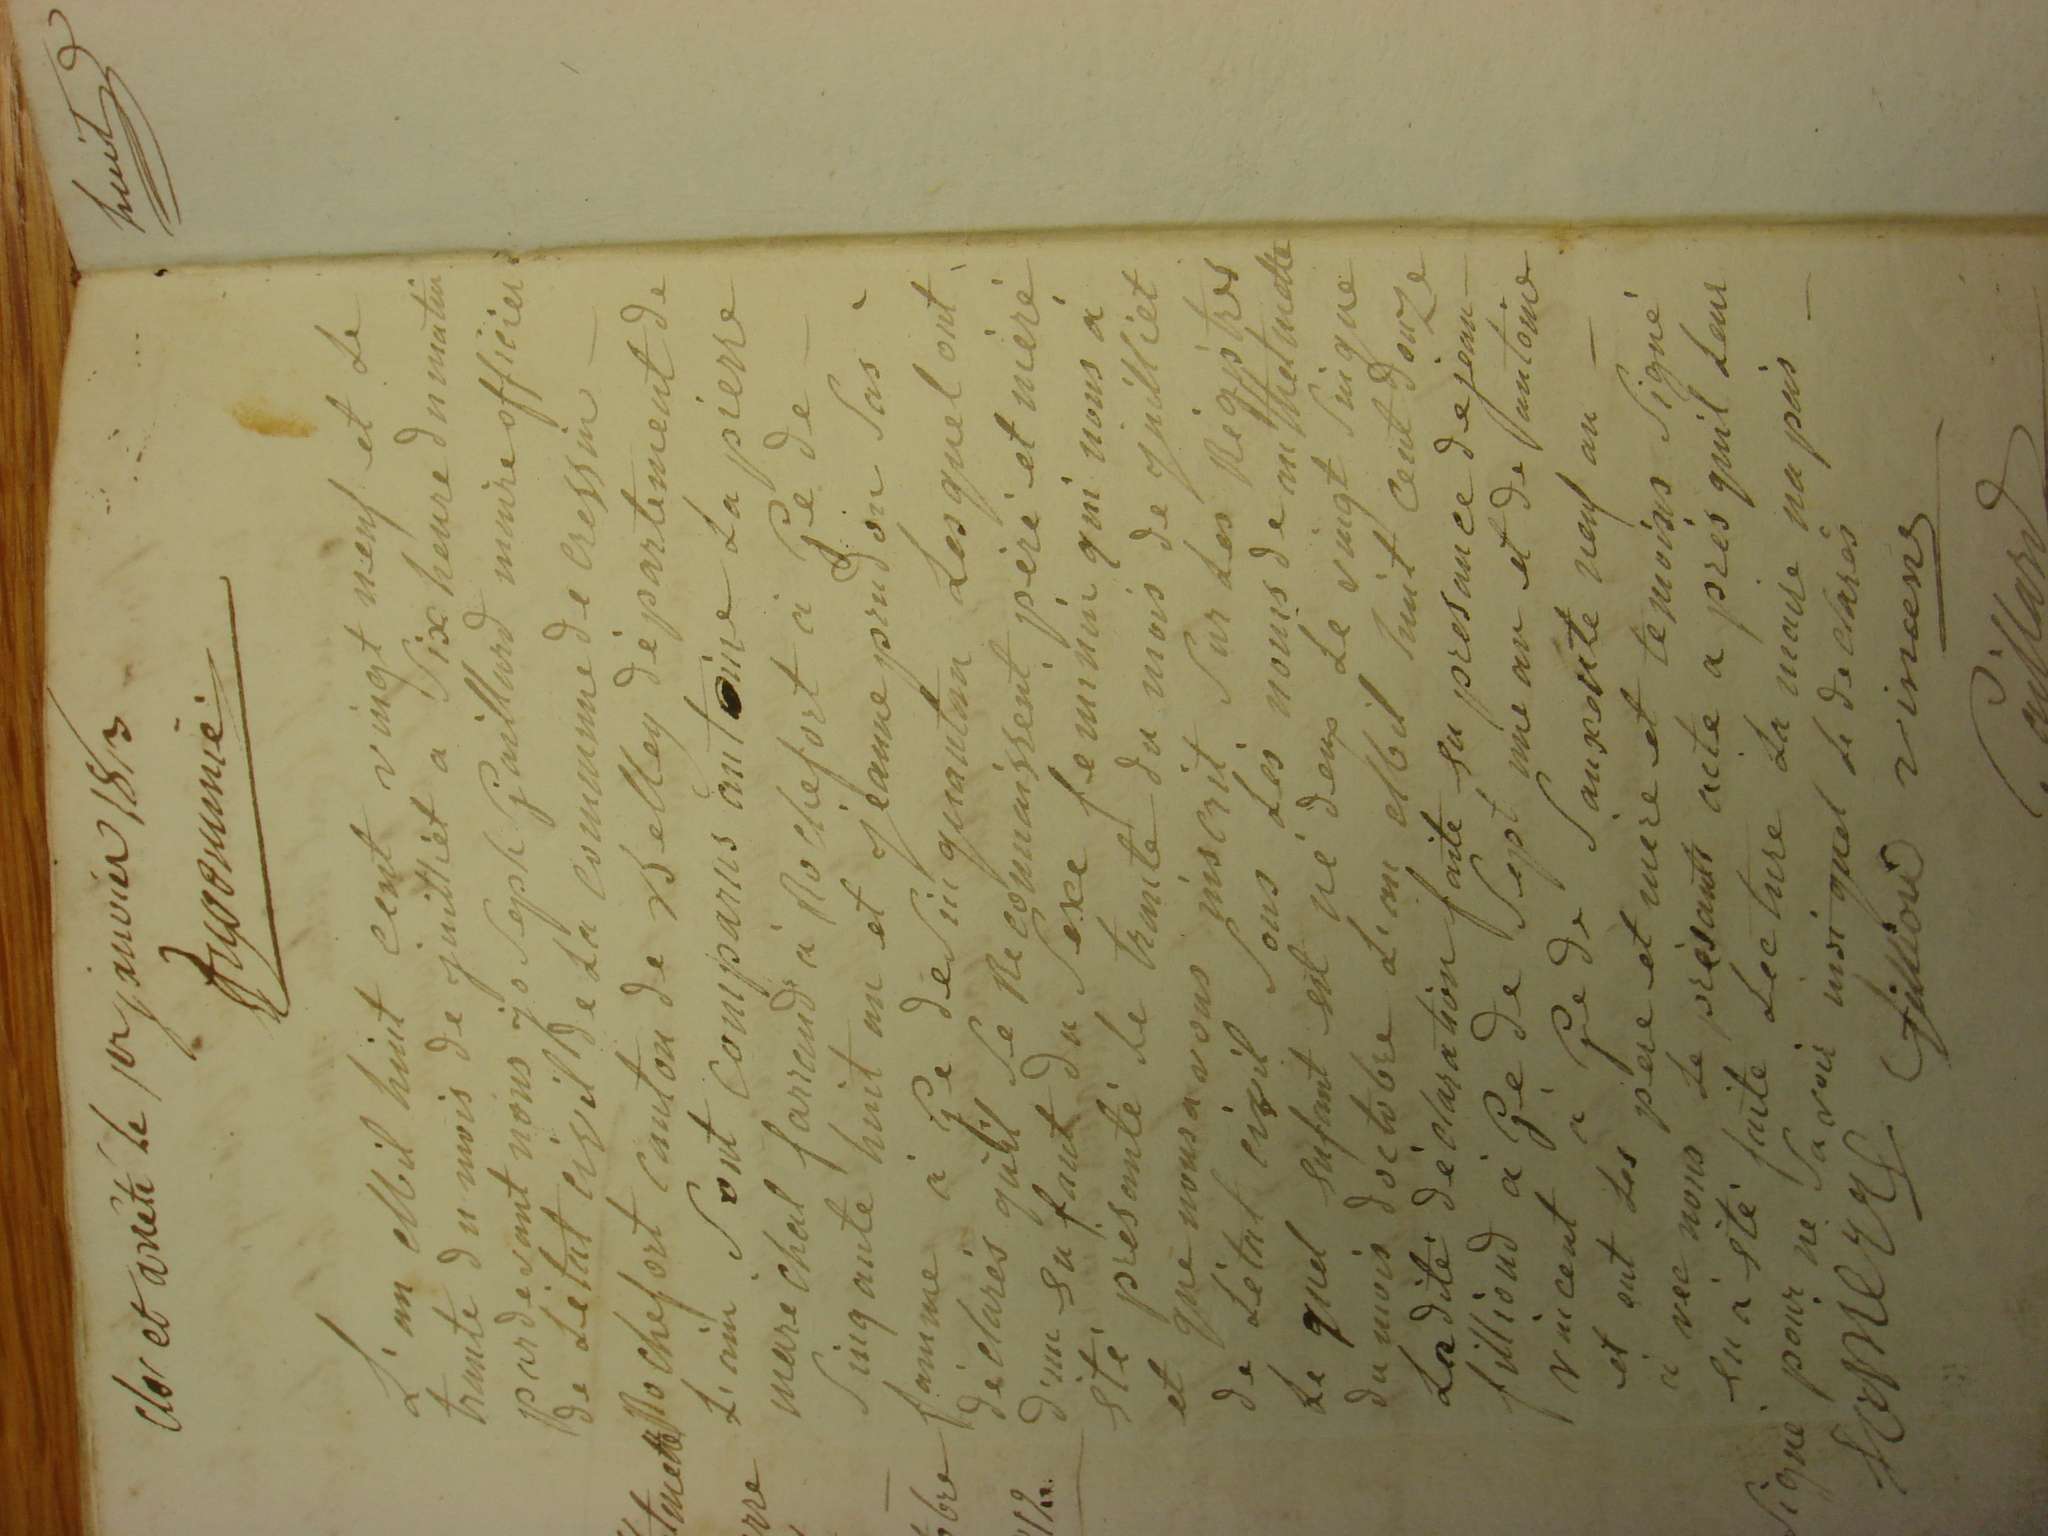 huit
Clos et arrêté le 1er janvier 1813
L'an Mil huit cent vingt neuf et Le
trante du mois de juilliet a Six heure du matin
par desant nous joseph Paillard maire officier
de Létat civil de La commune de cressin
Rochefort canton de Belley département de
L'ain Sont comparus antoine La pierre
marechal farrand à Rochefort à Pé de
Sinqante huit an et jeanne prudon Sas
famme à Pe de Sinquantan Lesquel ont
déclarés quhil Se Reconnaissent péré et méré
d'un enfant du Sexe feminin qui nous a
sté presanté Le trante du mois de juilliet
et que nous avons inscrit Sur Les Régistres
de Létat civil Sous Les noms de
Le quel enfant est né dens Le vingt Sinque
du mois doctobre L'an Mil huit cent douze
Ladite déclaration faite en presance de jean
filliond à Pé de Sept
vincent a Pé de Sanxante neuf an
et ont Les pere et mere et temoins Signé
a vec nous Le présant acte a prés quil Leur
en a sté faite Lecture La maire na pas
Signé pour ne Savoir insi quel Le declarés
fillion vincent
Paillard
bre